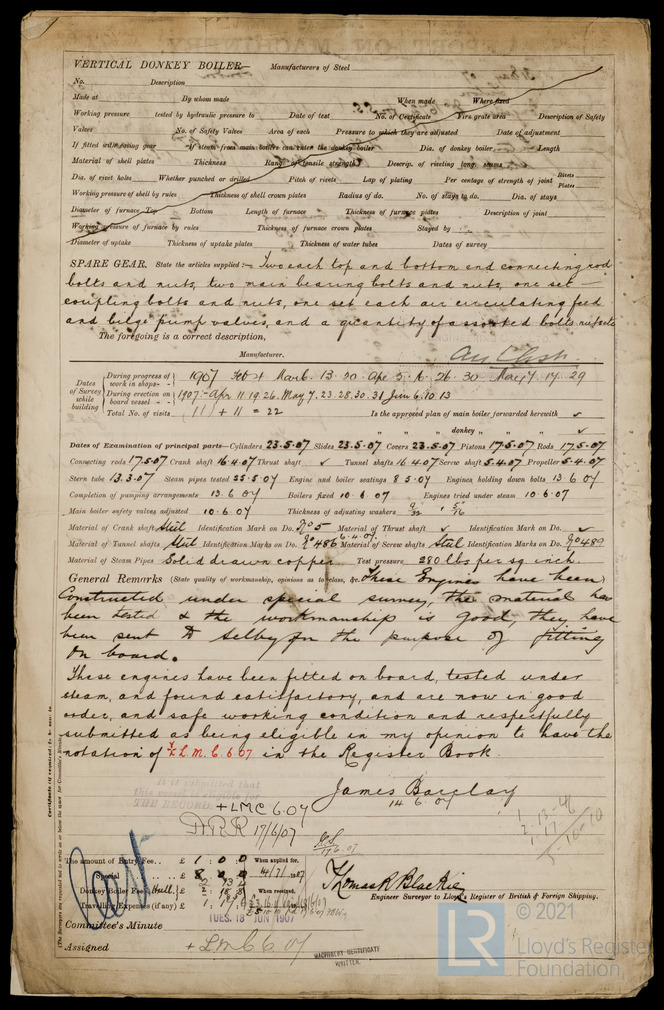 VERTICAL DONKEY BOILER— Manufacturers of Steel
No. Description
Made at By whom made When made Where fixed
Working pressure tested by hydraulic pressure to Date of test No. of Certificate Fire grate area Description of Safety
Valves No. of Safety Valves Area of each Pressure to which they are adjusted Date of adjustment
If fitted with easing gear If steam from main boilers can enter the donkey boiler Dia. of donkey boiler Length
Material of shell plates Thickness Range of tensile strength Descrip. of riveting long. seams
Dia. of rivet holes Whether punched or drilled Pitch of rivets Lap of plating Per centage of strength of joint Rivets Plates
Working pressure of shell by rules Thickness of shell crown plates Radius of do. No. of stays to do. Dia. of stays
Diameter of furnace Top Bottom Length of furnace Thickness of furnace plates Description of joint
Working pressure of furnace by rules Thickness of furnace crown plates Stayed by
Diameter of uptake Thickness of uptake plates Thickness of water tubes Dates of survey
SPARE GEAR. State the articles supplied:— Two each top and bottom end connecting rod
bolts and nuts, two main bearing bolts and nuts, one set
coupling bolts and nuts, one set each air circulating feed
and bilge pump valves, and a quantity of assorted bolts nuts etc
The foregoing is a correct description,
Manufacturer.
Dates of Survey while building
During progress of work in shops-- 1907 Feb 4 Mar 6. 13. 20. Apr 5. 16. 26. 30. May 7. 17. 29
During erection on board vessel-- 1907:- Apr 11. 19. 26. May 7. 23. 28. 30. 31 Jun 6. 10. 13
Total No. of visits 11 + 11 = 22 Is the approved plan of main boiler forwarded herewith ✓
" " " donkey " " " ✓
Dates of Examination of principal parts—Cylinders 23.5.07 Slides 23.5.07 Covers 23.5.07 Pistons 17.5.07 Rods 17.5.07
Connecting rods 17.5.07 Crank shaft 16.4.07 Thrust shaft ✓ Tunnel shafts 16.4.07 Screw shaft 5.4.07 Propeller 5.4.07
Stern tube 13.3.07 Steam pipes tested 23.5.07 Engine and boiler seatings 8.5.07 Engines holding down bolts 13.6.07
Completion of pumping arrangements 13.6.07 Boilers fixed 10.6.07 Engines tried under steam 10.6.07
Main boiler safety valves adjusted 10.6.07 Thickness of adjusting washers
Material of Crank shaft Steel Identification Mark on Do. No 5 Material of Thrust shaft ✓ Identification Mark on Do. ✓
Material of Tunnel shafts Steel Identification Marks on Do. No 486 6.4.07 Material of Screw shafts Steel Identification Marks on Do. No 489
Material of Steam Pipes Solid drawn copper Test pressure 280 lbs per sq inch.
General Remarks (State quality of workmanship, opinions as to class, &c. These Engines have been
Constructed under special survey, the material has
been tested & the workmanship is good, they have
been sent to Selby for the purpose of fitting
on board.
These engines have been fitted on board, tested under
steam, and found satisfactory, and are now in good
order, and safe working condition and respectfully
submitted as being eligible in my opinion to have the
notation of + L.M.C. 6.07 in the Register Book.
It is submitted that
this vessel is eligible for
THE RECORD
+ LMC 6.07
17/6/07
James Barclay
14.6.07
The amount of Entry Fee.. £ 1 : 0 : 0 When applied for.
Special £ 8 : 0 : 0
Donkey Boiler Fee £ When received.
Travelling Expenses (if any) £
Thomas R Blackie
Engineer Surveyor to Lloyd's Register of British & Foreign Shipping.
Committee's Minute TUES. 18 JUN 1907
Assigned + LMC 6.07
MACHINERY CERTIFICATE
WRITTEN.
© 2021
LR Lloyd's Register
Foundation